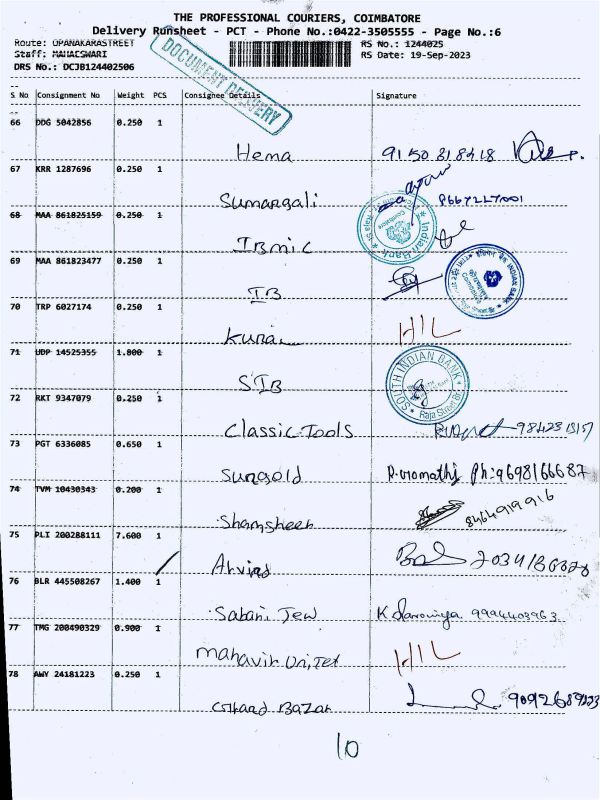 THE PROFESSIONAL COURIERS, COIMBATORE
Delivery Runsheet - PCT - Phone No.:0422-3505555 - Page No.:6
Route: OPANAKARASTREET RS No.: 1244025
Staff: MAHAESWARI RS Date: 19-Sep-2023
DRS No.: DCJB124402506
DOCUMENT DELIVERY
S No Consignment No Weight PCS Consignee Details Signature
66 DDG 5042856 0.250 1
Hema 91 50 818418
67 KRR 1287696 0.250 1
Sumangali 8667227001
68 MAA 861825159 0.250 1
IBMIC
Indian Bank
Coimbatore
69 MAA 861823477 0.250 1
IB
INDIAN BANK
70 TRP 6027174 0.250 1
HIL
71 UDP 14525355 1.800 1
SIB
SOUTH INDIAN BANK
Raja Street Br.
72 RKT 9347079 0.250 1
Classic Tools
73 PGT 6336085 0.650 1
Sungold Ph: 9698166687
74 TVM 10430343 0.200 1
Shamsheer 8464919916
75 PLI 200288111 7.600 1
Arvind
76 BLR 445508267 1.400 1
Sabari Jew 9994403963
77 TMG 200490329 0.900 1
mahavir HIL
78 AWY 24181223 0.250 1
Bazar
10